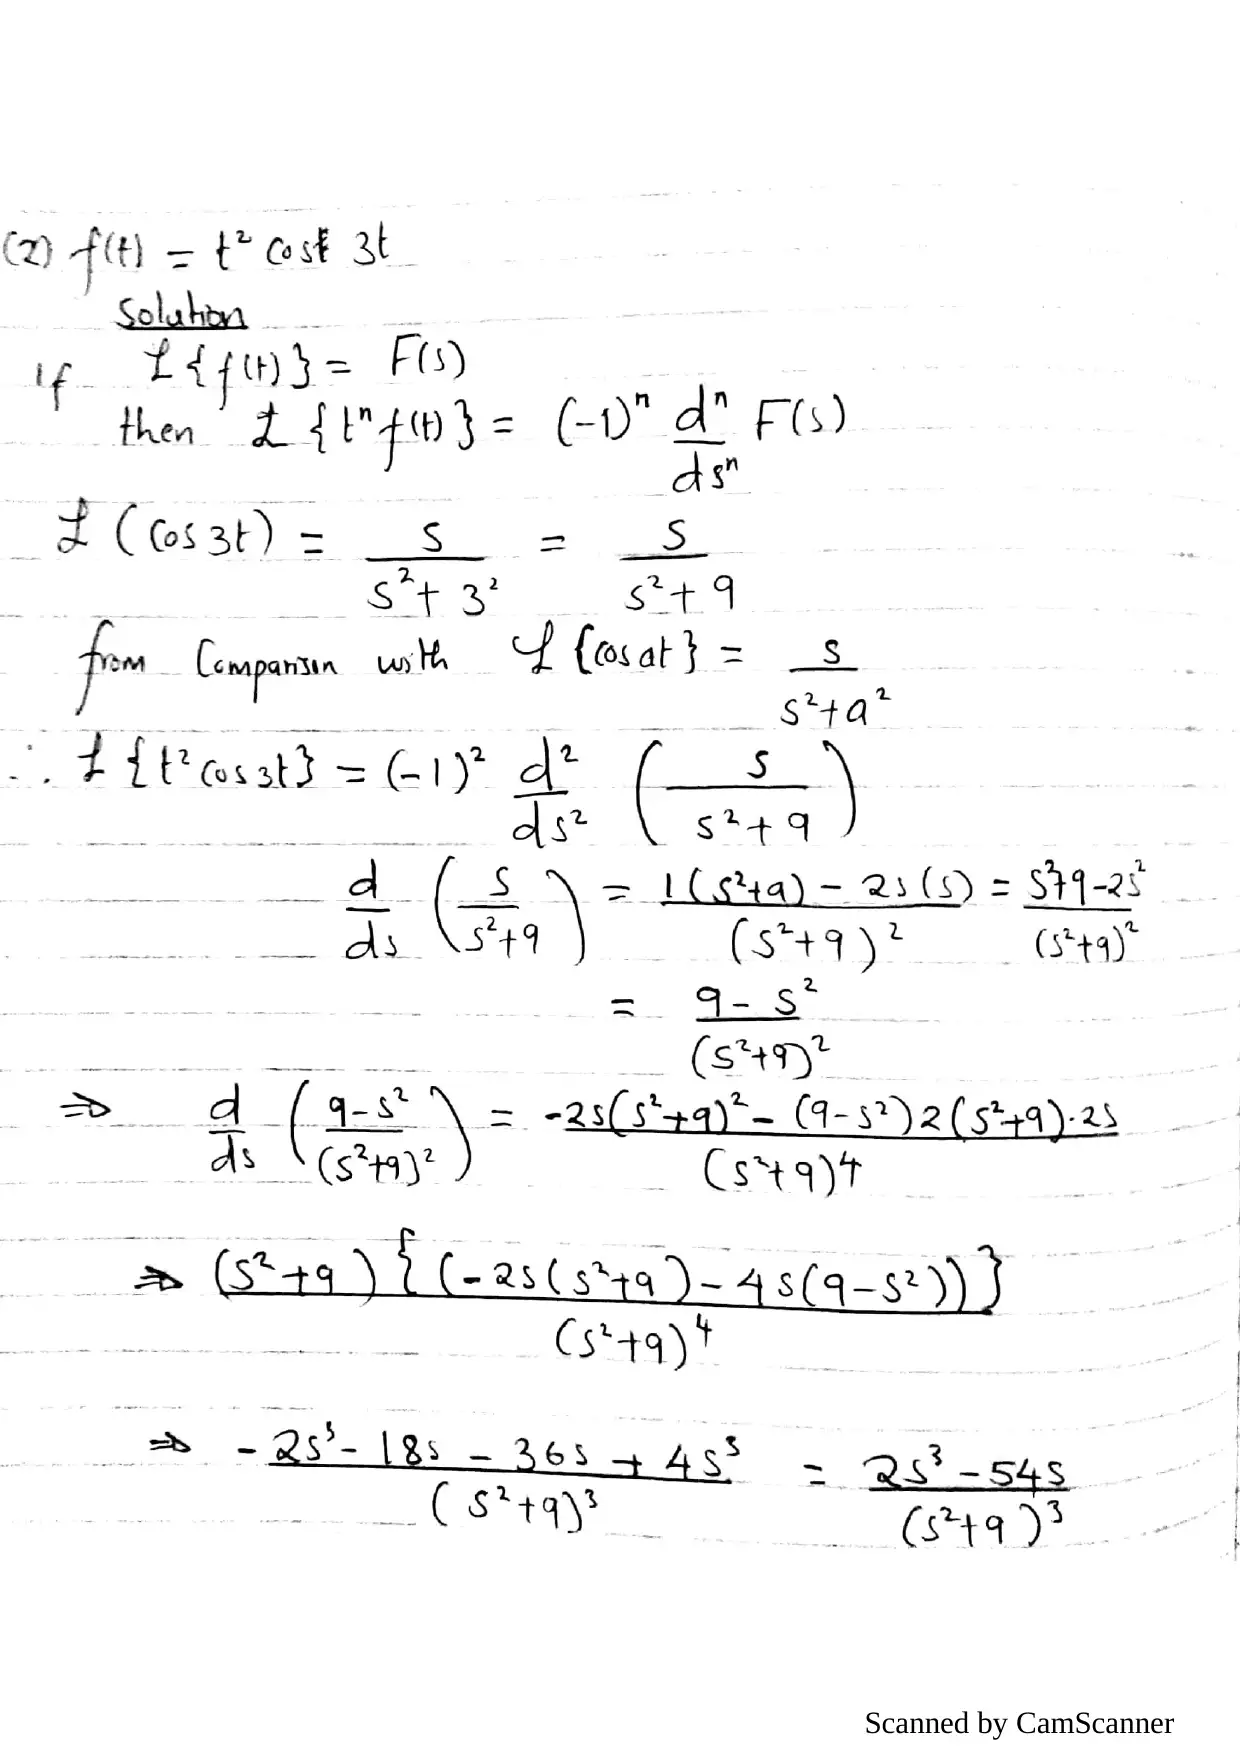 (2) f(t) = t² cos 3t
Solution
If ℒ{f(t)} = F(s)
then ℒ{tⁿf(t)} = (-1)ⁿ dⁿ/dsⁿ F(s)
ℒ(Cos 3t) = s/(s²+3²) = s/(s²+9)
from Comparison with ℒ{cos at} = s/(s²+a²)
∴ ℒ{t² cos 3t} = (-1)² d²/ds² (s/(s²+9))
d/ds (s/(s²+9)) = (1(s²+9) - 2s(s))/(s²+9)² = (s²+9-2s²)/(s²+9)²
= (9-s²)/(s²+9)²
⇒ d/ds ((9-s²)/(s²+9)²) = (-2s(s²+9)² - (9-s²)2(s²+9)·2s)/(s²+9)⁴
⇒ (s²+9){(-2s(s²+9) - 4s(9-s²))}/(s²+9)⁴
⇒ (-2s³ - 18s - 36s + 4s³)/(s²+9)³ = (2s³ - 54s)/(s²+9)³
Scanned by CamScanner